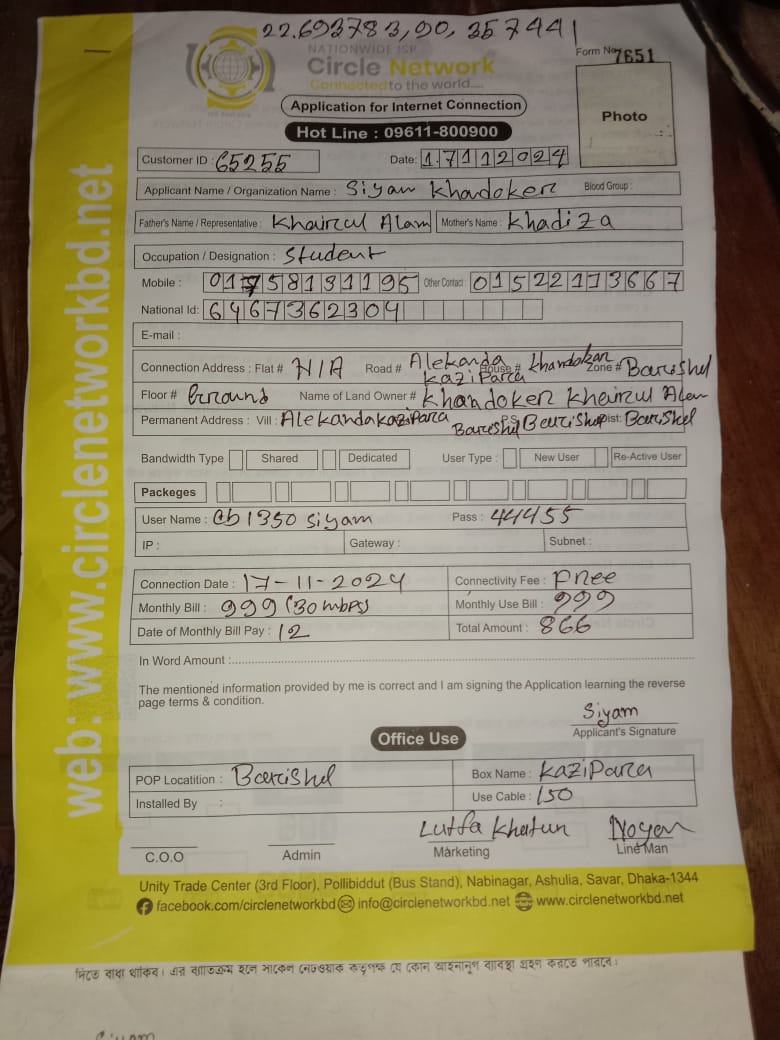 22.693783,90,357441
NATIONWIDE ISP
Circle Network
Connected to the world....
Form No 7651
Application for Internet Connection
Hot Line : 09611-800900
Photo
Customer ID : 65255 Date: 17112024
Applicant Name / Organization Name : Siyam Khandoker Blood Group :
Father's Name / Representative : Khairul Alam Mother's Name : Khadiza
Occupation / Designation : Student
Mobile : 01758131195 Other Contact 01522113667
National Id: 6467362304
E-mail :
Connection Address : Flat # N/A Road # Alekanda Kazipara House # Khandokar Zone # Barishal
Floor # Ground Name of Land Owner # Khandoker Khairul Alam
Permanent Address : Vill : Alekanda Kazipara Barishal P.S Barishal Dist: Barishal
Bandwidth Type Shared Dedicated User Type : New User Re-Active User
Packeges
User Name : cb1350 siyam Pass : 44455
IP : Gateway : Subnet :
Connection Date : 17-11-2024 Connectivity Fee : Free
Monthly Bill : 999 (30 mbps) Monthly Use Bill : 999
Date of Monthly Bill Pay : 12 Total Amount : 866
In Word Amount :
The mentioned information provided by me is correct and I am signing the Application learning the reverse
page terms & condition.
Siyam
Applicant's Signature
Office Use
POP Locatition : Barishal Box Name : Kazipara
Installed By : Use Cable : 150
Lutfa Khatun Noyon
C.O.O Admin Marketing Line Man
Unity Trade Center (3rd Floor), Pollibiddut (Bus Stand), Nabinagar, Ashulia, Savar, Dhaka-1344
facebook.com/circlenetworkbd info@circlenetworkbd.net www.circlenetworkbd.net
web: www.circlenetworkbd.net
দিতে বাধ্য থাকিব। এর ব্যাতিক্রম হলে সার্কেল নেটওয়ার্ক কতৃপক্ষ যে কোন আইনানুগ ব্যাবস্থা গ্রহণ করতে পারবে।
Siyam